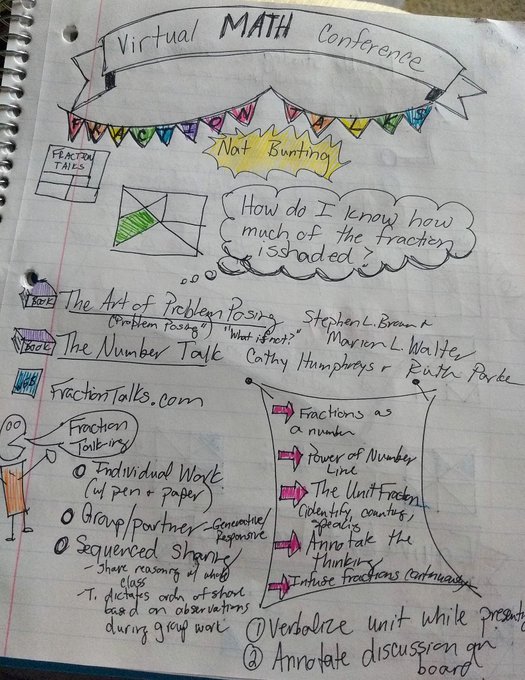 Virtual MATH Conference
FRACTION TALKS
Nat Bunting
FRACTION
TALKS
How do I know how
much of the fraction
is shaded?
Book
The Art of Problem Posing
(Problem Posing") "What if not?"
Stephen L. Brown &
Marion L. Walter
Book
The Number Talk
Cathy Humphreys & Ruth Parke
FractionTalks.com
Fraction
Talking
Individual Work
(w/ pen + paper)
Group/partner - Generative/
Responsive
Sequenced Sharing
- Share reasoning w/ whole
class
- T. dictates order of share
based on observations
during group work
Fractions as
a number
Power of Number
Line
The Unit Fraction
(identify, counting,
Annotate the
thinking
Infuse fractions continuously
① Verbalize unit while presenti
② Annotate discussion on
board